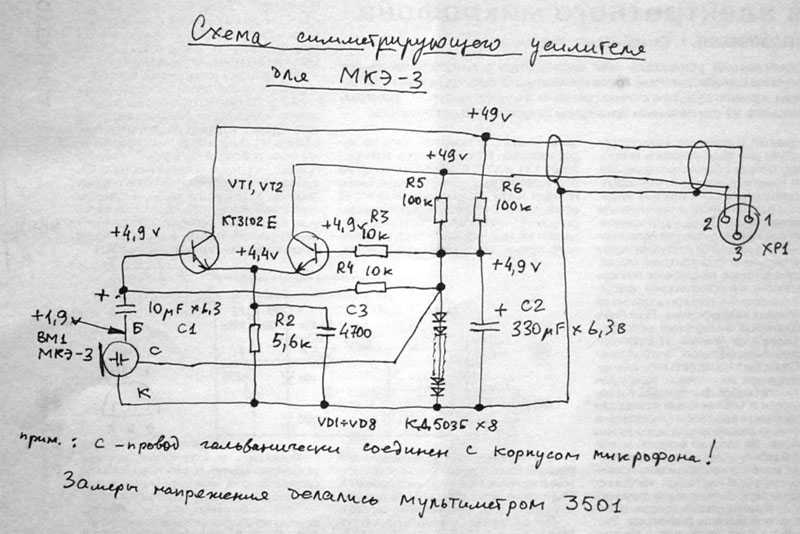 Схема симметрирующего усилителя
для МКЭ-3
+49v
+49v
VT1, VT2
R5
100к
R6
100к
КТ3102Е
+4,9v
R3
10к
2
1
3
XP1
+4,9v
+4,4v
R4
10к
+4,9v
+
10μF х6,3
C1
+1,9v
Б
ВМ1
МКЭ-3
С
К
R2
5,6к
C3
4700
+
C2
330μF х 6,3В
VD1÷VD8
КД503Б х8
прим.: С -провод гальванически соединен с корпусом микрофона!
Замеры напряжения делались мультиметром 3501